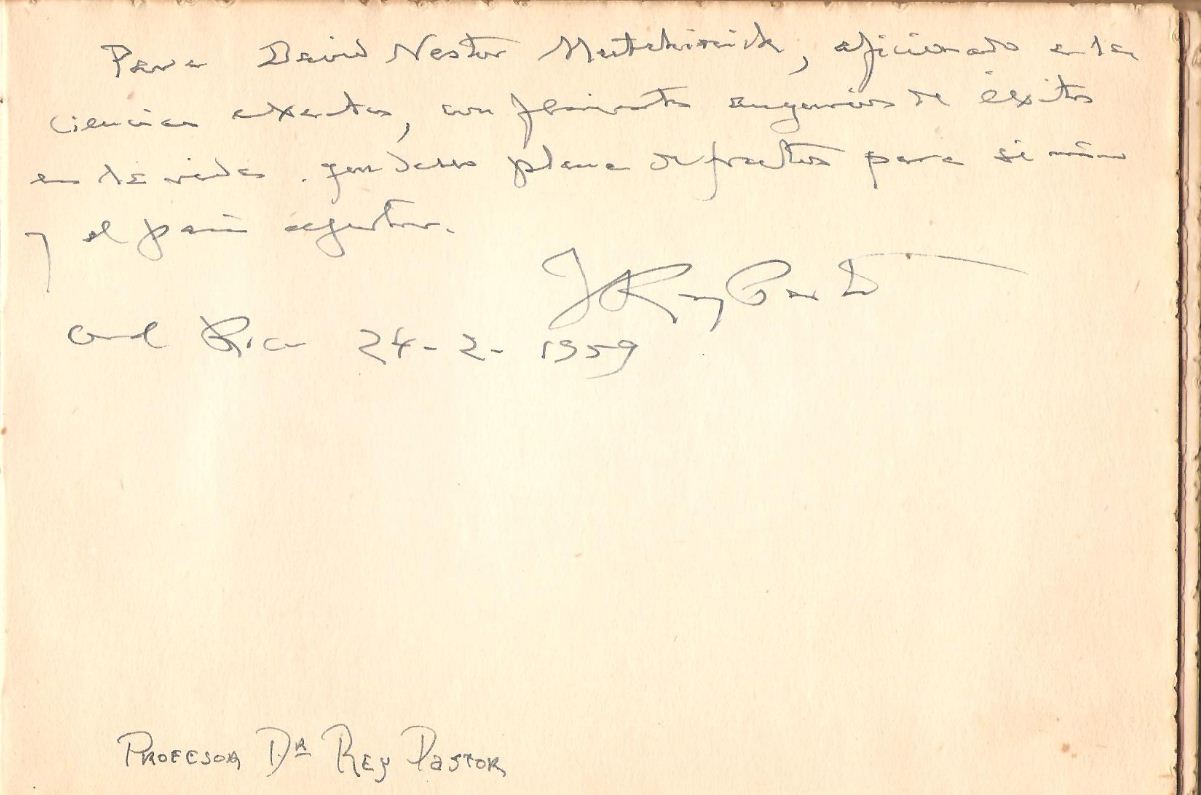 Para David Nestor Mutchinick, aficionado a las
ciencias exactas, con fervientes augurios de éxitos
en la vida, que deseo plena de frutos para si mismo
y el país
J Rey Pastor
24-2-1959
PROFESOR DR REY PASTOR